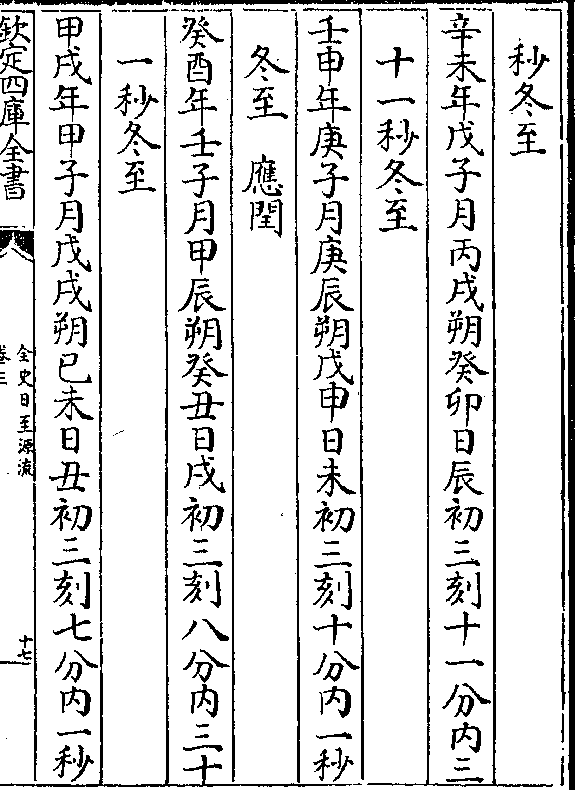 秒冬至
辛未年戊子月丙戌朔癸卯日辰初三刻十一分内三
十一秒冬至
壬申年庚子月庚辰朔戊申日未初三刻十分内一秒
冬至　應閏
癸酉年壬子月甲辰朔癸丑日戌初三刻八分内三十
一秒冬至
甲戌年甲子月戊戌朔己未日丑初三刻七分内一秒
欽定四庫全書
全史日至源流
卷三
十七